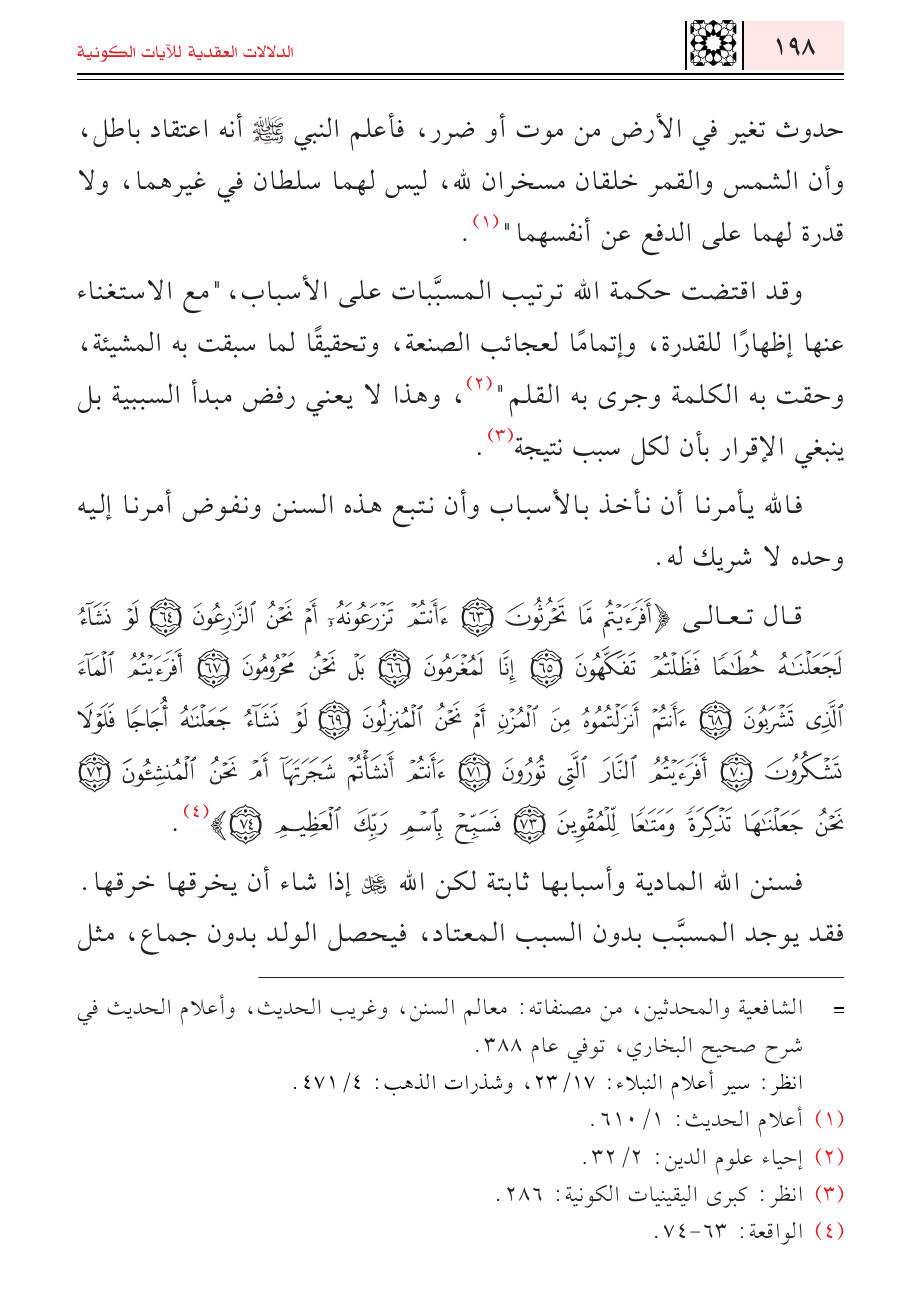 ١٩٨
الدلالات العقدية للآيات الكونية
حدوث تغير في الأرض من موت أو ضرر، فأعلم النبي ﷺ أنه اعتقاد باطل،
وأن الشمس والقمر خلقان مسخران لله، ليس لهما سلطان في غيرهما، ولا
قدرة لهما على الدفع عن أنفسهما"(١).
وقد اقتضت حكمة الله ترتيب المسبَّبات على الأسباب، "مع الاستغناء
عنها إظهارًا للقدرة، وإتمامًا لعجائب الصنعة، وتحقيقًا لما سبقت به المشيئة،
وحقت به الكلمة وجرى به القلم"(٢)، وهذا لا يعني رفض مبدأ السببية بل
ينبغي الإقرار بأن لكل سبب نتيجة(٣).
فالله يأمرنا أن نأخذ بالأسباب وأن نتبع هذه السنن ونفوض أمرنا إليه
وحده لا شريك له.
قال تعالى ﴿أَفَرَءَيْتُم مَّا تَحْرُثُونَ ٦٣ ءَأَنتُمْ تَزْرَعُونَهُۥٓ أَمْ نَحْنُ ٱلزَّٰرِعُونَ ٦٤ لَوْ نَشَآءُ
لَجَعَلْنَٰهُ حُطَٰمًا فَظَلْتُمْ تَفَكَّهُونَ ٦٥ إِنَّا لَمُغْرَمُونَ ٦٦ بَلْ نَحْنُ مَحْرُومُونَ ٦٧ أَفَرَءَيْتُمُ ٱلْمَآءَ
ٱلَّذِى تَشْرَبُونَ ٦٨ ءَأَنتُمْ أَنزَلْتُمُوهُ مِنَ ٱلْمُزْنِ أَمْ نَحْنُ ٱلْمُنزِلُونَ ٦٩ لَوْ نَشَآءُ جَعَلْنَٰهُ أُجَاجًا فَلَوْلَا
تَشْكُرُونَ ٧٠ أَفَرَءَيْتُمُ ٱلنَّارَ ٱلَّتِى تُورُونَ ٧١ ءَأَنتُمْ أَنشَأْتُمْ شَجَرَتَهَآ أَمْ نَحْنُ ٱلْمُنشِـُٔونَ ٧٢
نَحْنُ جَعَلْنَٰهَا تَذْكِرَةً وَمَتَٰعًا لِّلْمُقْوِينَ ٧٣ فَسَبِّحْ بِٱسْمِ رَبِّكَ ٱلْعَظِيمِ ٧٤﴾(٤).
فسنن الله المادية وأسبابها ثابتة لكن الله ﷻ إذا شاء أن يخرقها خرقها.
فقد يوجد المسبَّب بدون السبب المعتاد، فيحصل الولد بدون جماع، مثل
= الشافعية والمحدثين، من مصنفاته: معالم السنن، وغريب الحديث، وأعلام الحديث في
شرح صحيح البخاري، توفي عام ٣٨٨.
انظر: سير أعلام النبلاء: ٢٣/١٧، وشذرات الذهب: ٤٧١/٤.
(١) أعلام الحديث: ٦١٠/١.
(٢) إحياء علوم الدين: ٣٢/٢.
(٣) انظر: كبرى اليقينيات الكونية: ٢٨٦.
(٤) الواقعة: ٦٣-٧٤.